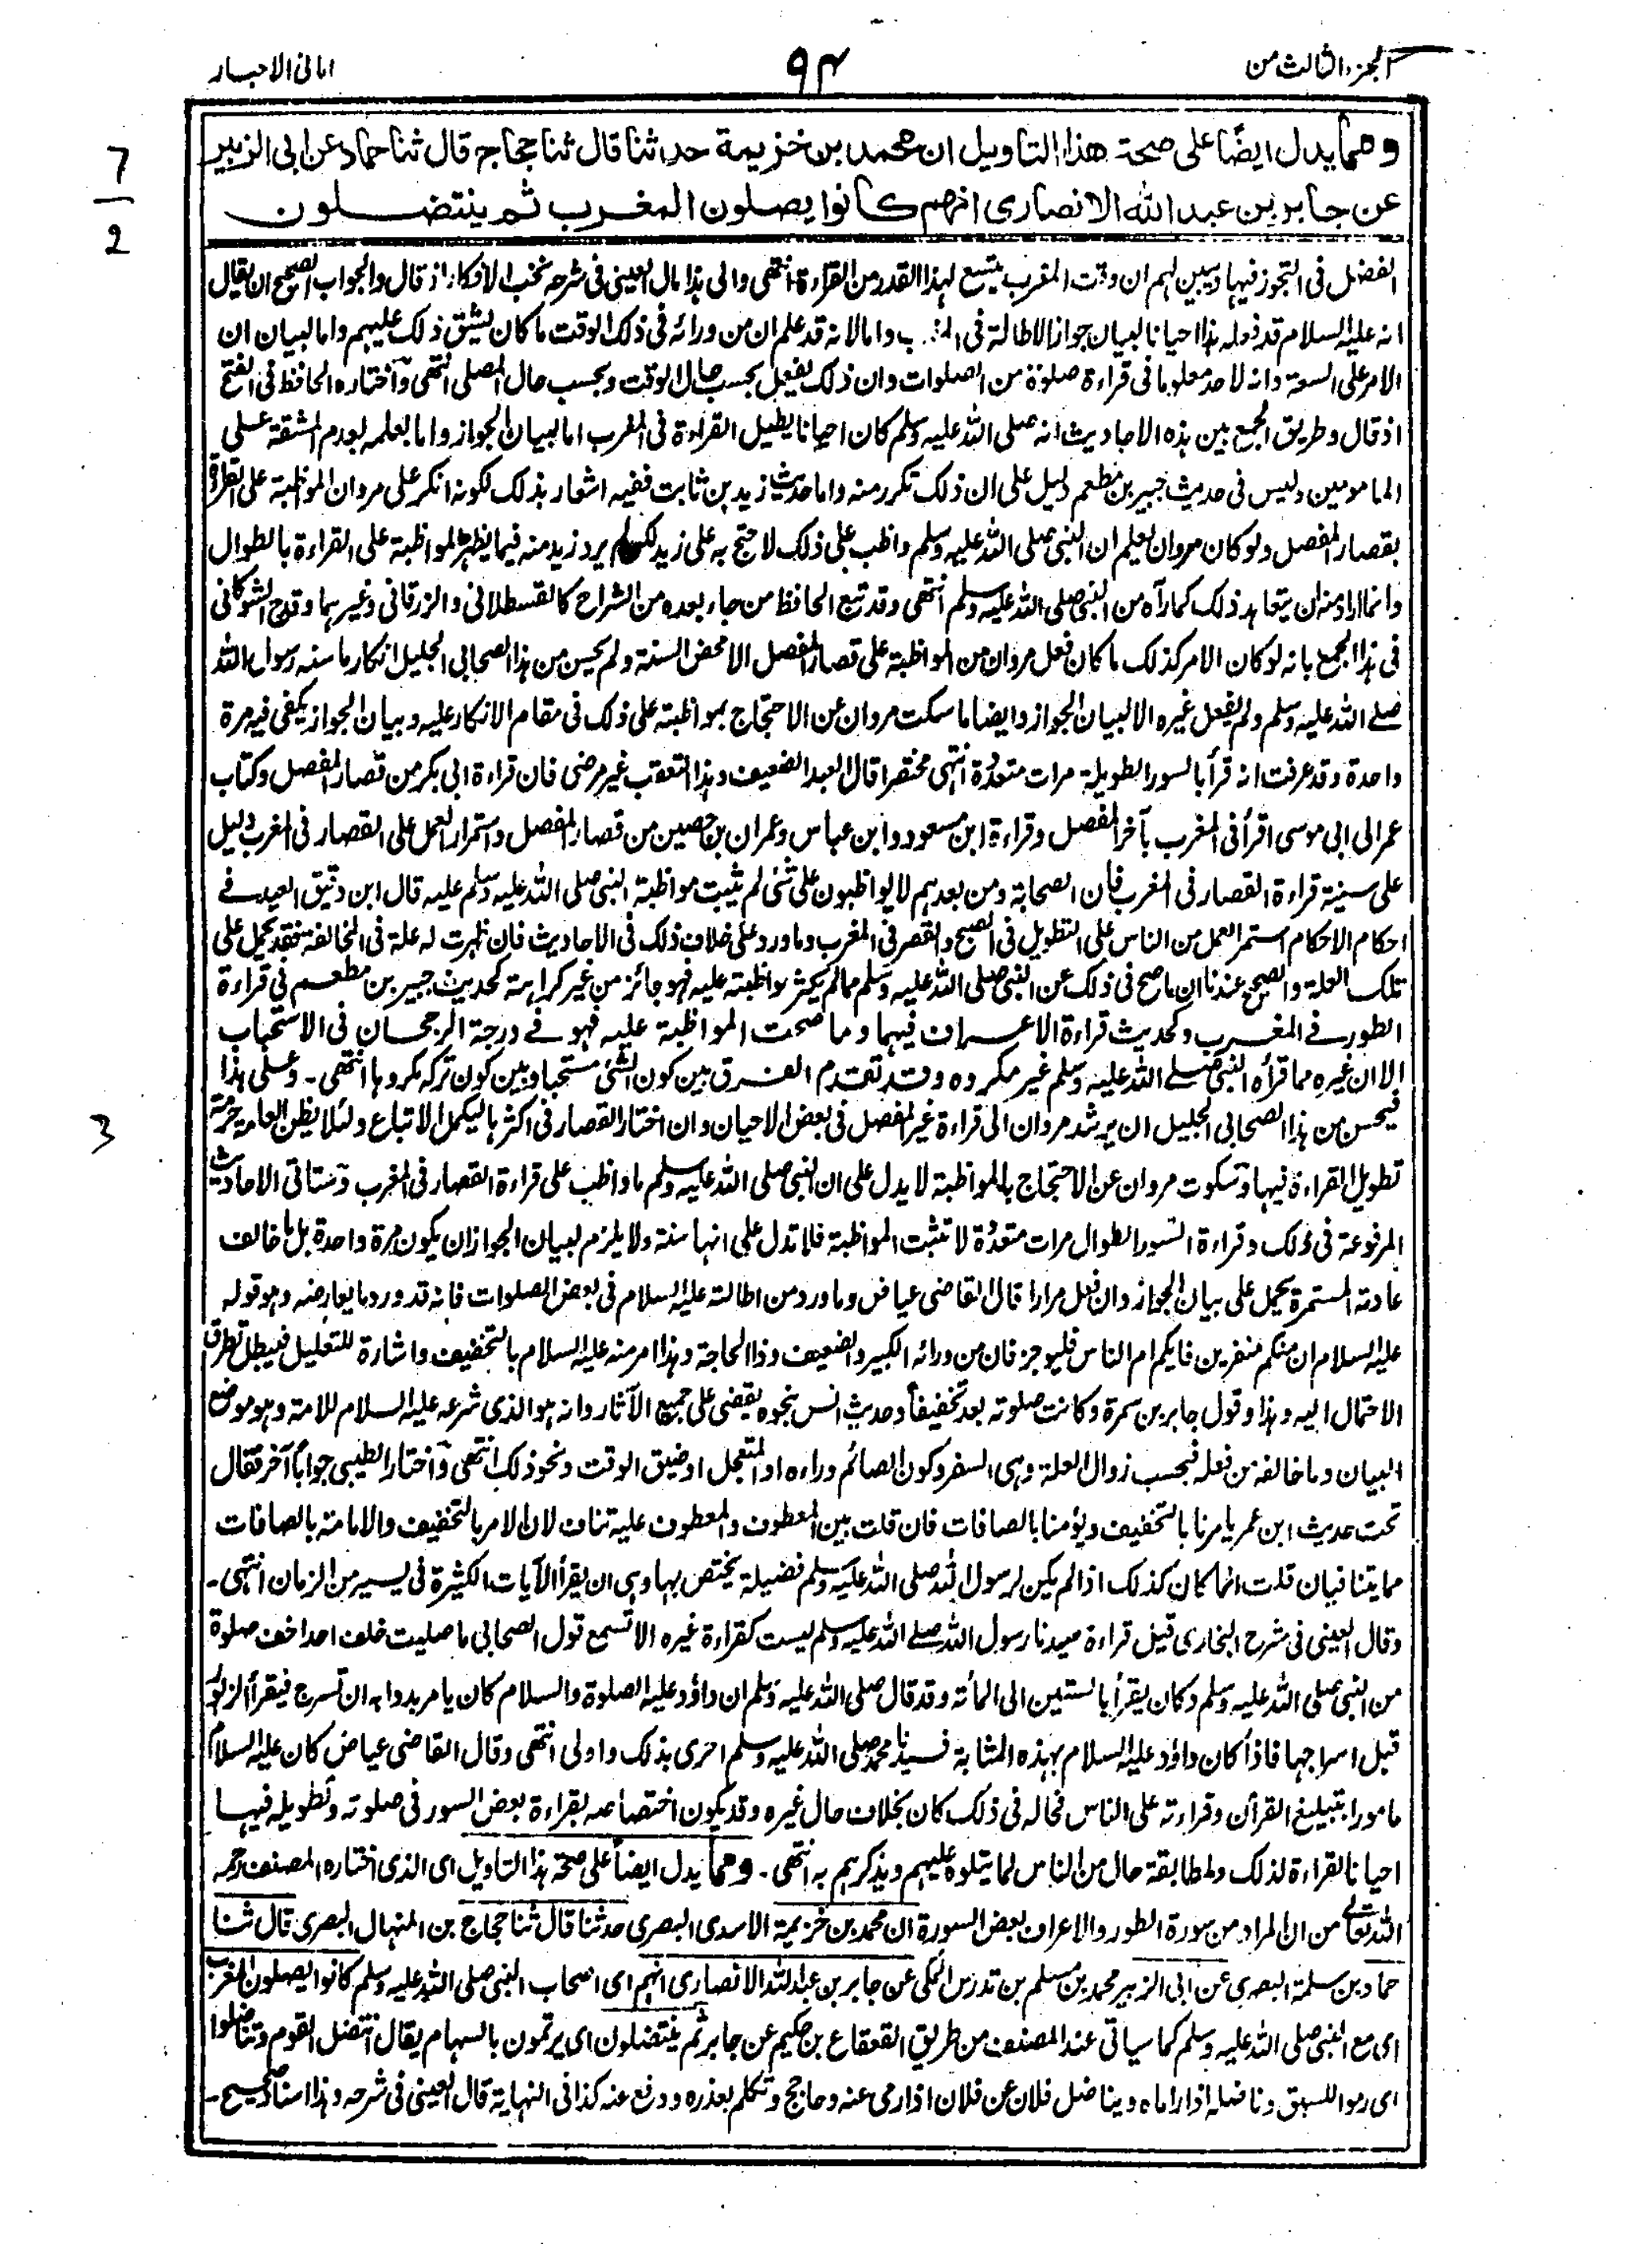 الجزء الثالث من
٩٤
امانی الاحبار
7
2
3
ومما يدل ايضًا على صحة هذا التاويل ان محمد بن خزيمة حدثنا قال ثنا حجاج قال ثنا حماد عن ابی الزبير
عن جابر بن عبد الله الانصاری انهم كانوا يصلون المغرب ثم ينتضلون
الفضل فی التجوز فيها ويبين لهم ان وقت المغرب يتسع لهذا القدر من القراءة انتهی والی هذا مال العينی فی شرحه نخب الافكار اذ قال والجواب الصحيح ان يقال
انه عليه السلام قد فعله هذا احيانا لبيان جواز الاطالة فی واما لانه قد علم ان من ورائه فی ذلك الوقت ما كان يشق ذلك عليهم واما لبيان ان
الامر على السعة وانه لا حد معلوما فی قراءة صلوة من الصلوات وان ذلك يفعل بحسب حال الوقت وبحسب حال المصلی انتهی وآختاره الحافظ فی الفتح
اذ قال وطريق الجمع بين هذه الاحاديث انه صلی الله عليه وسلم كان احيانا يطيل القراءة فی المغرب اما لبيان الجواز واما لعلمه بعدم المشقة علی
المامومين وليس فی حديث جبير بن مطعم دليل علی ان ذلك تكرر منه واما حديث زيد بن ثابت ففيه اشعار بذلك لكونه انكر علی مروان المواظبة علی القراءة
بقصار المفصل ولو كان مروان يعلم ان النبی صلی الله عليه وسلم واظب علی ذلك لاحتج به علی زيد لكن لم يرد زيد منه فيما يظهر المواظبة علی القراءة بالطوال
وانما اراد منه ان يتعاهد ذلك كما رآه من النبی صلی الله عليه وسلم انتهی وقد تبع الحافظ من جاء بعده من الشراح كالقسطلانی والزرقانی وغيرهما وقدح الشوكانی
فی هذا الجمع بانه لو كان الامر كذلك ما كان فعل مروان من المواظبة علی قصار المفصل الا محض السنة ولم يحسن من هذا الصحابی الجليل انكار ما سنه رسول الله
صلے الله عليه وسلم ولم يفعل غيره الا لبيان الجواز وايضا ما سكت مروان عن الاحتجاج بمواظبته علی ذلك فی مقام الانكار عليه وبيان الجواز يكفی فيه مرة
واحدة وقد عرفت انه قرأ بالسور الطويلة مرات متعددة انتهی مختصرا قال العبد الضعيف وهذا التعقب غير مرضی فان قراءة ابی بكر من قصار المفصل وكتاب
عمر الی ابی موسی اقرأ فی المغرب بآخر المفصل وقراءة ابن مسعود وابن عباس وعمران بن حصين من قصار المفصل واستمرار العمل علی القصار فی المغرب دليل
علی سنية قراءة القصار فی المغرب فان الصحابة ومن بعدهم لا يواظبون علی شئ لم يثبت مواظبة النبی صلی الله عليه وسلم عليه قال ابن دقيق العيد فے
احكام الاحكام استمر العمل من الناس علی التطويل فی الصبح والقصر فی المغرب وما ورد علی خلاف ذلك فی الاحاديث فان ظهرت له علة فی المخالفة فقد يحمل علی
تلك العلة والصحيح عندنا ان ما صح فی ذلك عن النبی صلی الله عليه وسلم مما لم يكثر مواظبته عليه فهو جائز من غير كراهة كحديث جبير بن مطعم فی قراءة
الطور فے المغرب وكحديث قراءة الاعراف فيها وما صحت المواظبة عليه فهو فے درجة الرجحان فی الاستحباب
الا ان غيره مما قرأه النبی صلے الله عليه وسلم غير مكروه وقد تقدم الفرق بين كون الشئ مستحبا وبين كون تركه مكروها انتهی ۔ وعلی هذا
فيحسن من هذا الصحابی الجليل ان يرشد مروان الی قراءة غير المفصل فی بعض الاحيان وان اختار القصار فی اكثرها ليكمل الاتباع ولئلا يظن العامة حرمة
تطويل القراءة فيها وسكوت مروان عن الاحتجاج بالمواظبة لا يدل علی ان النبی صلی الله عليه وسلم ما واظب علی قراءة القصار فی المغرب وستاتی الاحاديث
المرفوعة فی ذلك وقراءة السور الطوال مرات متعددة لا تثبت المواظبة فلا تدل علی انها سنة ولا يلزم لبيان الجواز ان يكون مرة واحدة بل ما خالف
عادته المستمرة يحمل علی بيان الجواز وان فعل مرارا قال القاضی عياض وما ورد من اطالته عليه السلام فی بعض الصلوات فانه قد ورد ما يعارضه وهو قوله
عليه السلام ان منكم منفرين فايكم ام الناس فليوجز فان من ورائه الكبير والضعيف وذا الحاجة وهذا امر منه عليه السلام بالتخفيف واشارة للتعليل فيبطل تطرق
الاحتمال اليه وهذا وقول جابر بن سمرة وكانت صلوته بعد تخفيفا وحديث انس بنحوه يقضی علی جميع الآثار وانه هو الذی شرعه عليه السلام للامة وهو موضع
البيان وما خالفه من فعله فبحسب زوال العلة وهی السفر وكون الصائم وراءه او المتعجل او ضيق الوقت ونحو ذلك انتهی وآختار الطيبی جوابا آخر فقال
تحت حديث ابن عمر يامرنا بالتخفيف ويؤمنا بالصافات فان قلت بين المعطوف والمعطوف عليه تناف لان الامر بالتخفيف والامامة بالصافات
مما يتنافيان قلت انما كان كذلك اذا لم يكن لرسول الله صلی الله عليه وسلم فضيلة يختص بها وهی ان يقرأ الآيات الكثيرة فی يسير من الزمان انتهی ۔
وقال العينی فی شرح البخاری قيل قراءة سيدنا رسول الله صلے الله عليه وسلم ليست كقراءة غيره الا تسمع قول الصحابی ما صليت خلف احد اخف صلوة
من النبی صلی الله عليه وسلم وكان يقرأ بالستين الی المائة وقد قال صلی الله عليه وسلم ان داؤد عليه الصلوة والسلام كان يامر بدوابه ان تسرج فيقرأ الزبور
قبل اسراجها فاذا كان داؤد عليه السلام بهذه المثابة فسيدنا محمد صلی الله عليه وسلم احری بذلك واولی انتهی وقال القاضی عياض كان عليه السلام
مامورا بتبليغ القرآن وقراءته علی الناس فحاله فی ذلك كان بخلاف حال غيره وقد يكون اختصاصه بقراءة بعض السور فی صلوته وتطويله فيها
احيانا القراءة لذلك ولمطابقة حال من الناس لما يتلوه عليهم ويذكرهم به انتهی ۔ ومما يدل ايضاً علی صحة هذا التاويل ای الذی اختاره المصنف رحمه
الله تعالی من ان المراد من سورة الطور والاعراف بعض السورة ان محمد بن خزيمة الاسدی البصری حدثنا قال ثنا حجاج بن المنهال البصری قال ثنا
حماد بن سلمة البصری عن ابی الزبير محمد بن مسلم بن تدرس المكی عن جابر بن عبد الله الانصاری انهم ای اصحاب النبی صلی الله عليه وسلم كانوا يصلون المغرب
ای مع النبی صلی الله عليه وسلم كما سياتی عند المصنف من طريق القعقاع بن حكيم عن جابر ثم ينتضلون ای يرتمون بالسهام يقال انتضل القوم وتناضلوا
ای رموا للسبق وناضله اذا راماه ويناضل فلان عن فلان اذا رمی عنه وحاجج وتكلم بعذره ودفع عنه كذا فی النهاية قال العينی فی شرحه وهذا اسناد صحيح ۔